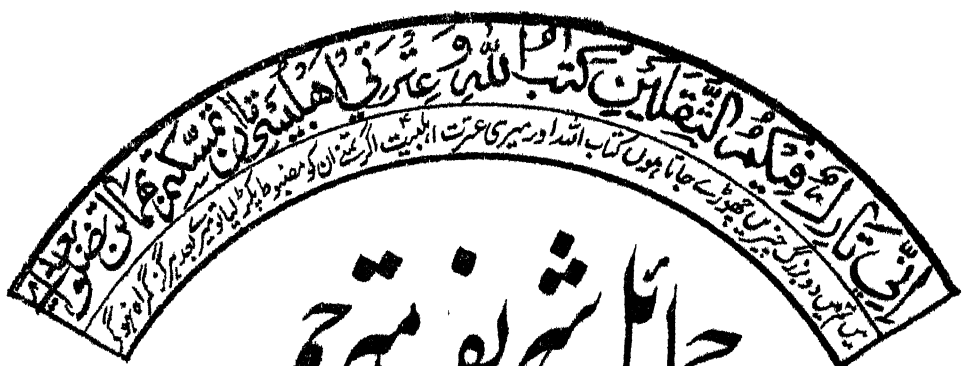 انی تارک فیکم الثقلین کتب الله و عترتی اهلبیتی ان تمسکتم بهما لن تضلوا بعدی
میں تم میں دو بزرگ چیزیں چھوڑے جاتا ہوں کتاب اللہ اور میری عترت اہلبیتؑ اگر تم نے ان کو مضبوط پکڑ لیا تو میرے بعد ہرگز گمراہ نہ ہو گے
حمائل شریف مترجم